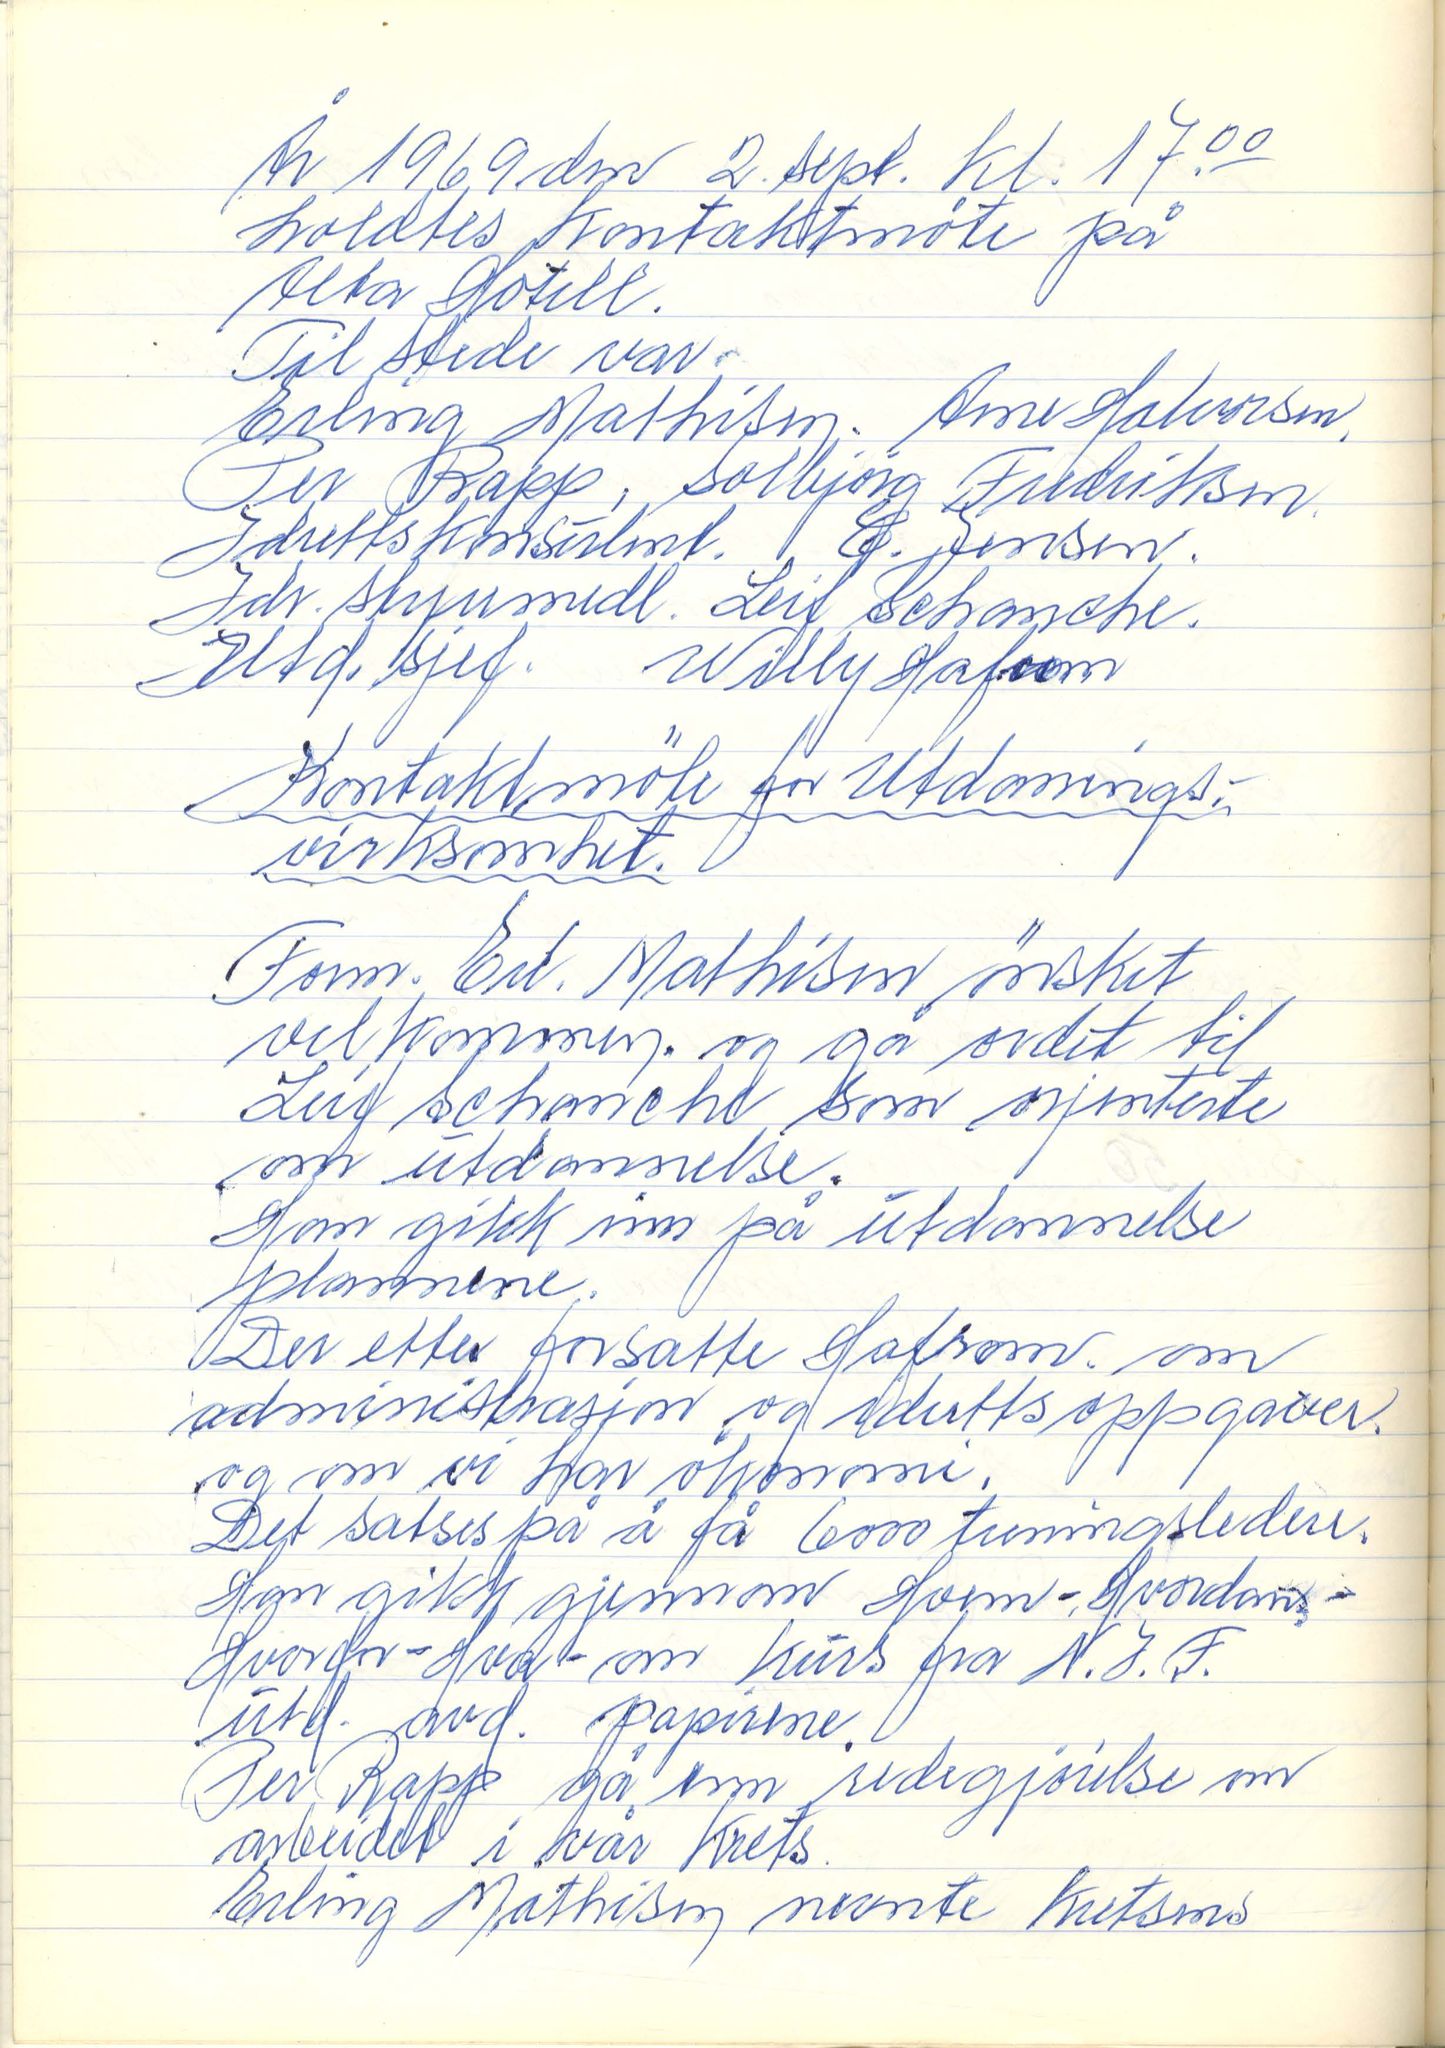 År 1969 den 2. sept. kl. 17.00
holdtes kontaktmöte på
Alta Hotell.
Til stede var.
Erling Mathisen. Arne Halvorsen.
Per Rapp, Solbjörg Fredriksen.
Idrettskonsulent. E. Jensen.
Idr. styremedl. Leif Schanche.
Utd. sjef. Willy Hafsom
Kontaktmöte for Utdanings-
virksomhet.
Form. Erl. Mathisen önsket
velkommen. og ga ordet til
Leif Schanche som orjenterte
om utdannelse.
Han gikk inn på utdannelse
plannene.
Der etter forsatte Hafsom. om
administrasjon og idrettsoppgaver.
og om vi har ökonomi.
Det satses på å få 6000 treningsledere.
Han gikk gjennom Hvem-Hvordan-
Hvorfor-Hva-om kurs fra N.I.F.
utd. avd. papirene.
Per Rapp ga enn redegjörelse om
arbeidet i vår krets.
Erling Mathisen nevnte kretsens